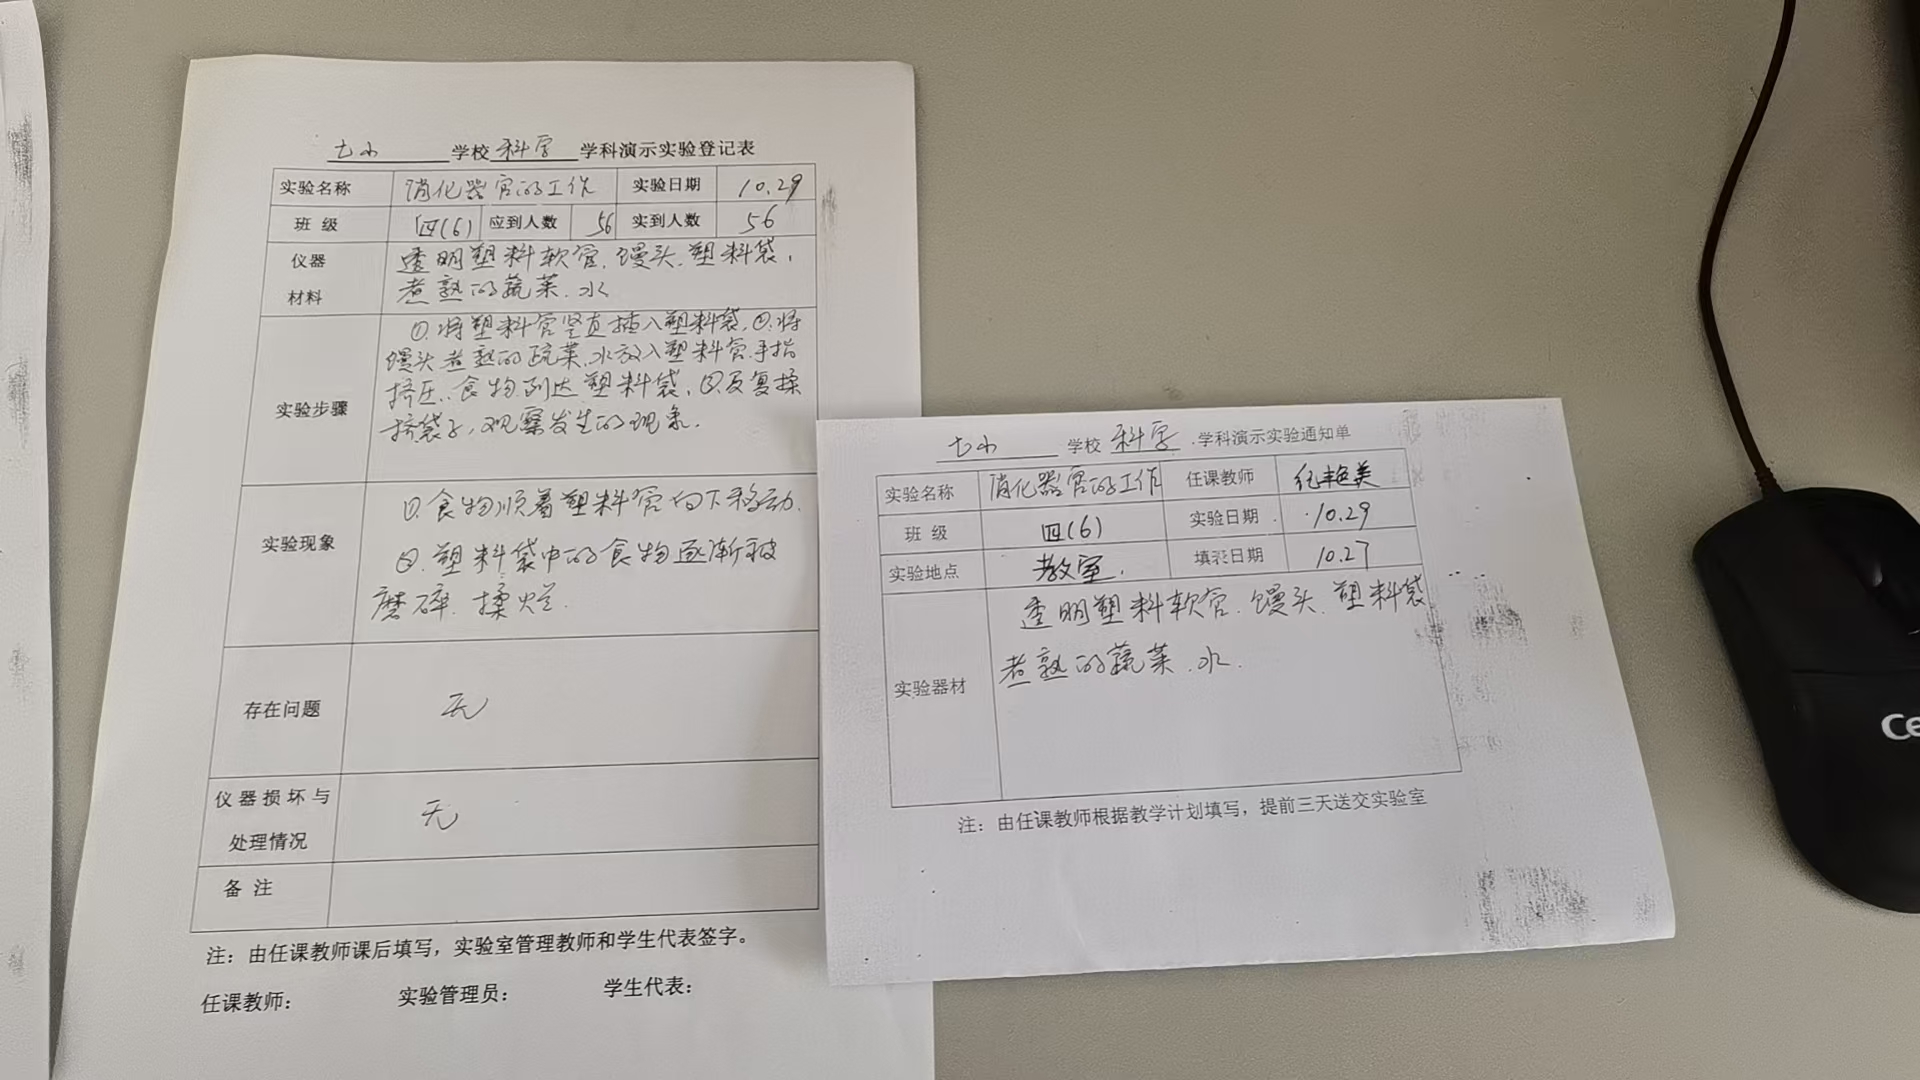 七小 学校 科学 学科演示实验登记表
实验名称 消化器官的工作 实验日期 10.29
班 级 四(6) 应到人数 56 实到人数 56
仪器材料 透明塑料软管、馒头、塑料袋、
煮熟的蔬菜、水
实验步骤 ①.将塑料管竖直插入塑料袋,②.将
馒头煮熟的蔬菜、水放入塑料管.手指
挤压、食物到达塑料袋,③.反复揉
挤袋子,观察发生的现象.
实验现象 ①.食物顺着塑料管向下移动.
②.塑料袋中的食物逐渐被
磨碎、揉烂.
存在问题 无
仪器损坏与
处理情况 无
备 注
注:由任课教师课后填写,实验室管理教师和学生代表签字。
任课教师: 实验管理员: 学生代表:
七小 学校 科学 学科演示实验通知单
实验名称 消化器官的工作 任课教师 纪艳美
班 级 四(6) 实验日期 10.29
实验地点 教室. 填表日期 10.27
实验器材 透明塑料软管、馒头、塑料袋
煮熟的蔬菜、水.
注:由任课教师根据教学计划填写,提前三天送交实验室
Ce